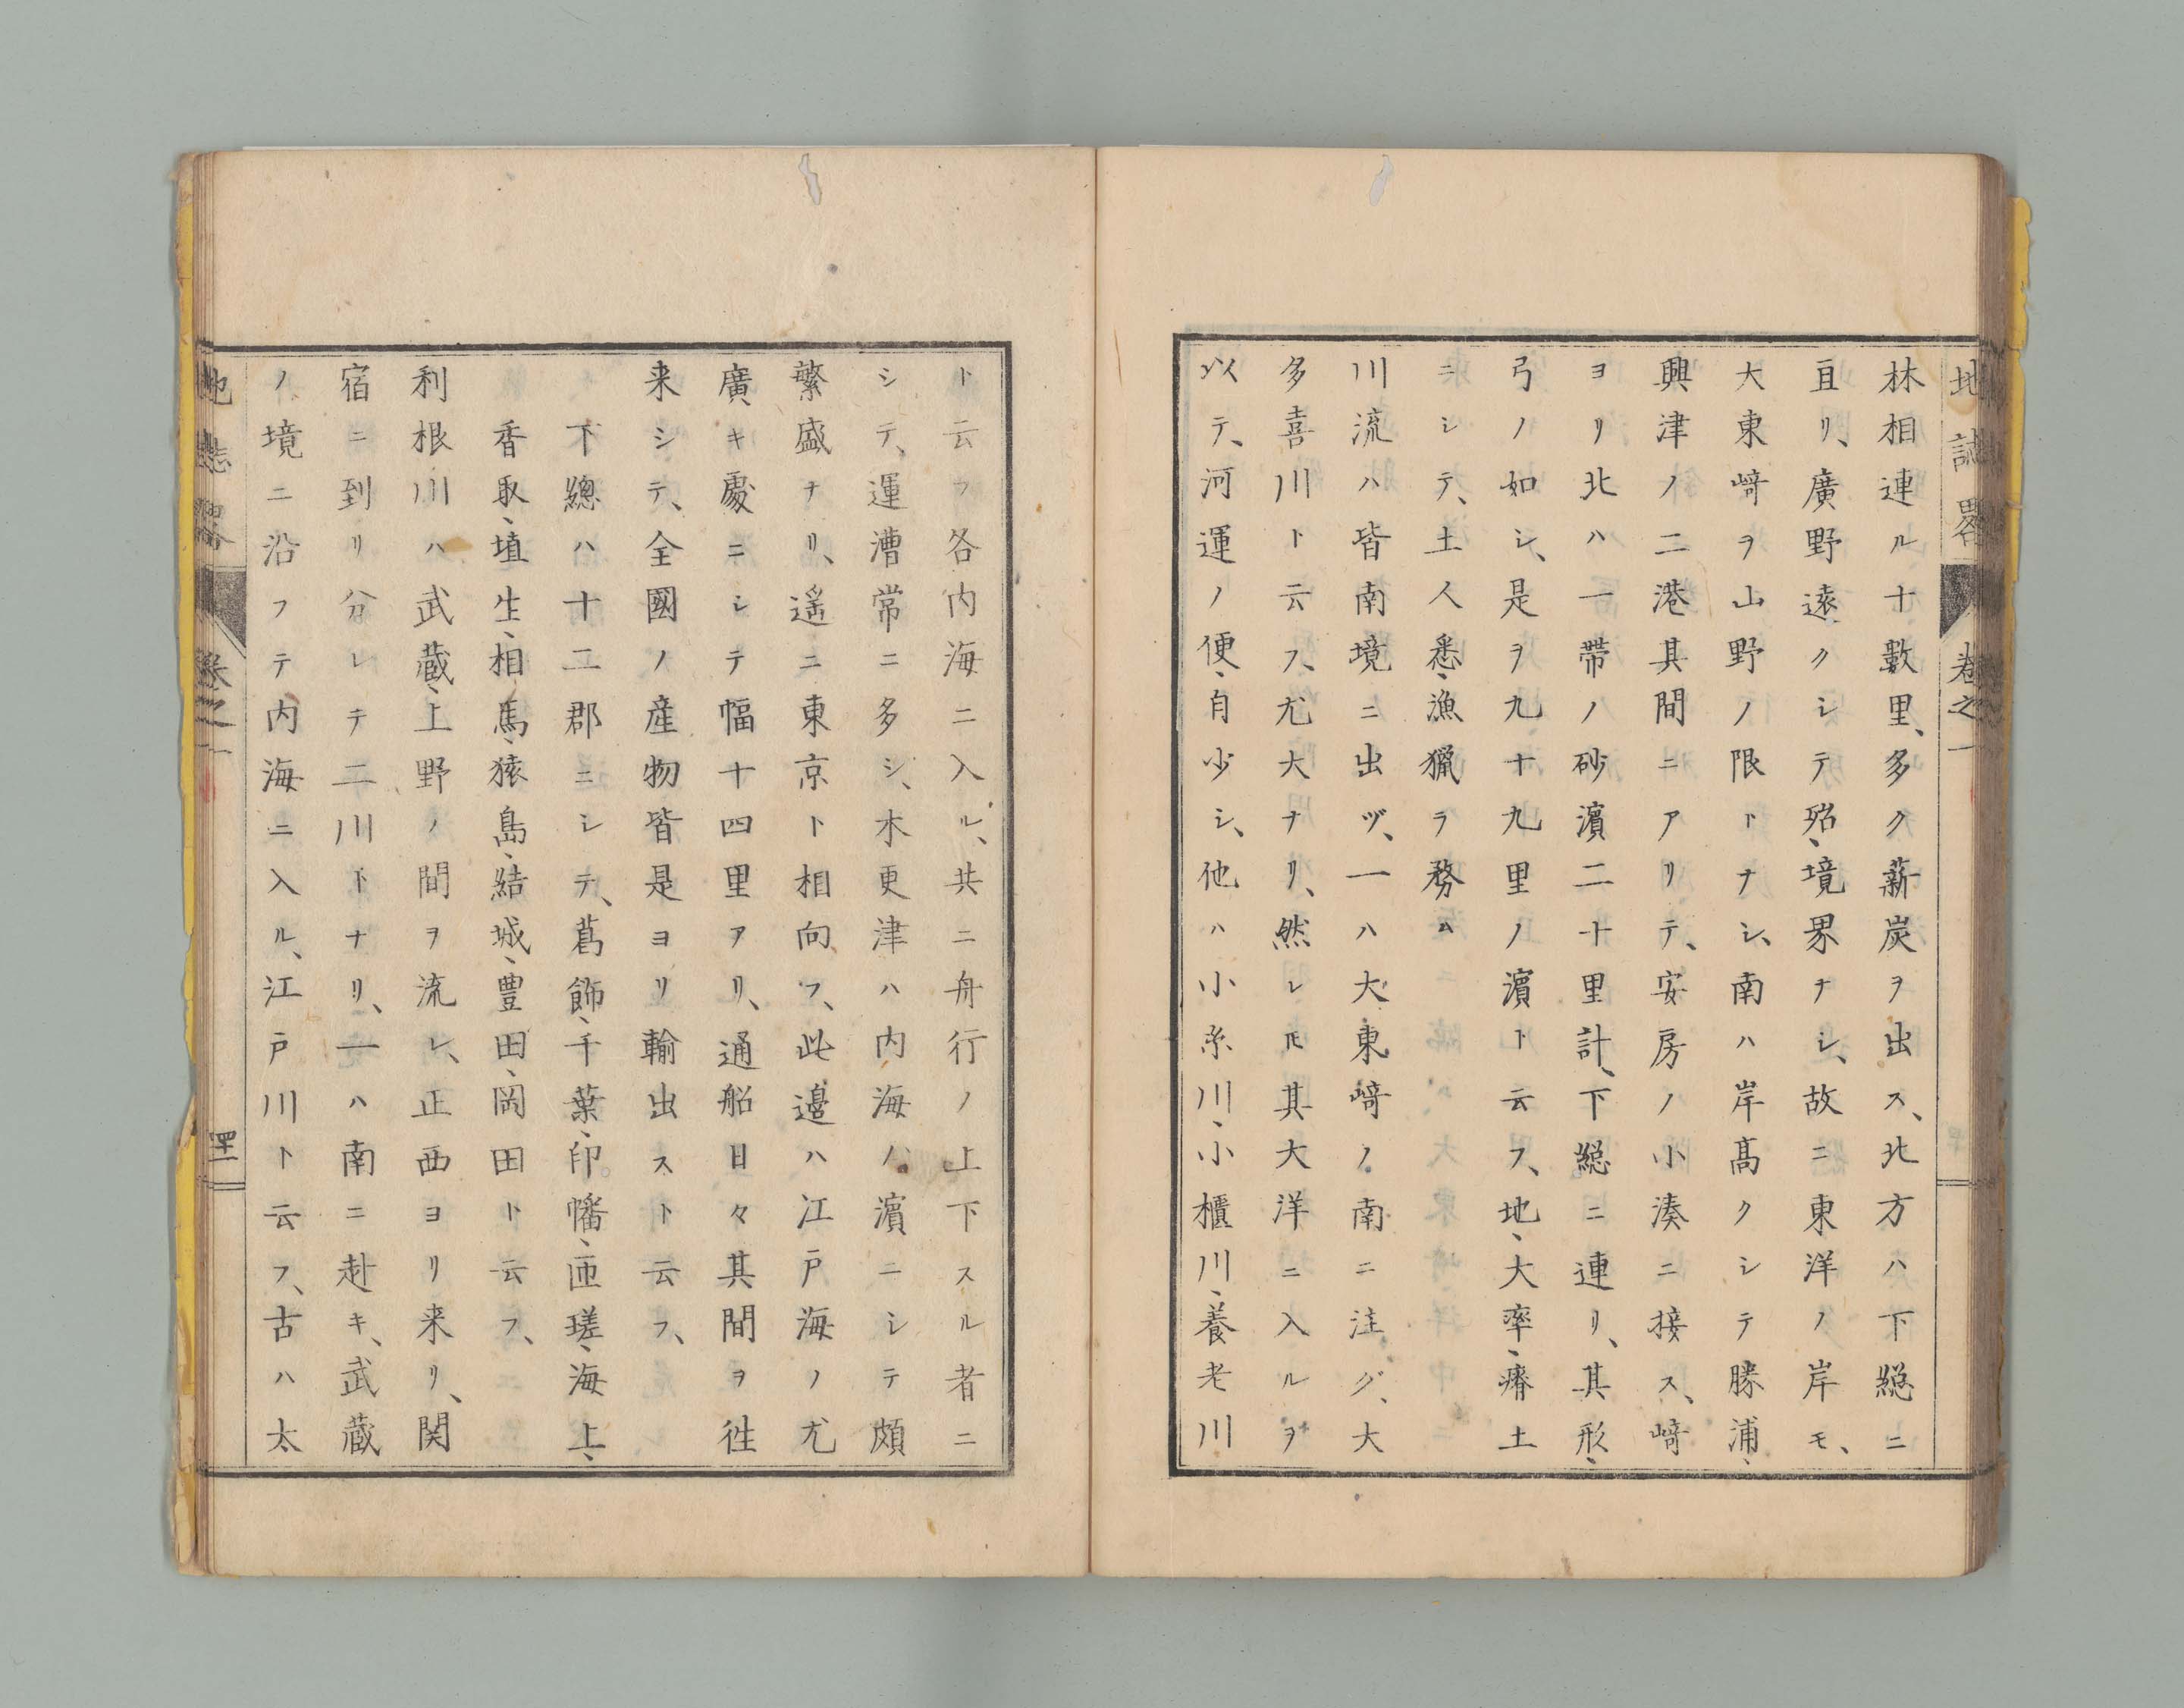 地誌畧 巻之一
林相連ル十數里、多ク薪炭ヲ出ス、北方ハ下緫ニ
亘リ、廣野遠クシテ殆、境界ナシ、故ニ東洋ノ岸モ、
大東﨑ヲ山野ノ限トナシ、南ハ岸髙クシテ勝浦、
興津ノ二港其間ニアリテ、安房ノ小湊ニ接ス、﨑
ヨリ北ハ一帶ノ砂濵二十里計、下緫ニ連リ、其形、
弓ノ如シ、是ヲ九十九里ノ濵ト云フ、地、大率、瘠土
ニシテ、土人悉、漁獵ヲ務ム
川流ハ皆南境ニ出ヅ、一ハ大東﨑ノ南ニ注グ、大
多喜川ト云フ、尤大ナリ、然レ𪜈其大洋ニ入ルヲ
以テ、河運ノ便、自少シ、他ハ小糸川、小櫃川、養老川
ト云フ各内海ニ入ル、共ニ舟行ノ上下スル者ニ
シテ、運漕常ニ多シ、木更津ハ内海ノ濵ニシテ頗
繁盛ナリ、遥ニ東京ト相向フ、此邉ハ江戸海ノ尤
廣キ處ニシテ幅十四里アリ、通船日々其間ヲ徃
来シテ、全國ノ産物皆是ヨリ輸出スト云フ、
下總ハ十二郡ニシテ、葛飾、千葉、印幡、匝瑳、海上、
香取、埴生、相馬、猿島、結城、豊田、岡田ト云フ、
利根川ハ武蔵、上野ノ間ヲ流レ、正西ヨリ来リ、関
宿ニ到リ分レテ二川トナリ、一ハ南ニ赴キ、武蔵
ノ境ニ沿フテ内海ニ入ル、江戸川ト云フ、古ハ太
地誌畧 巻之一 四十一